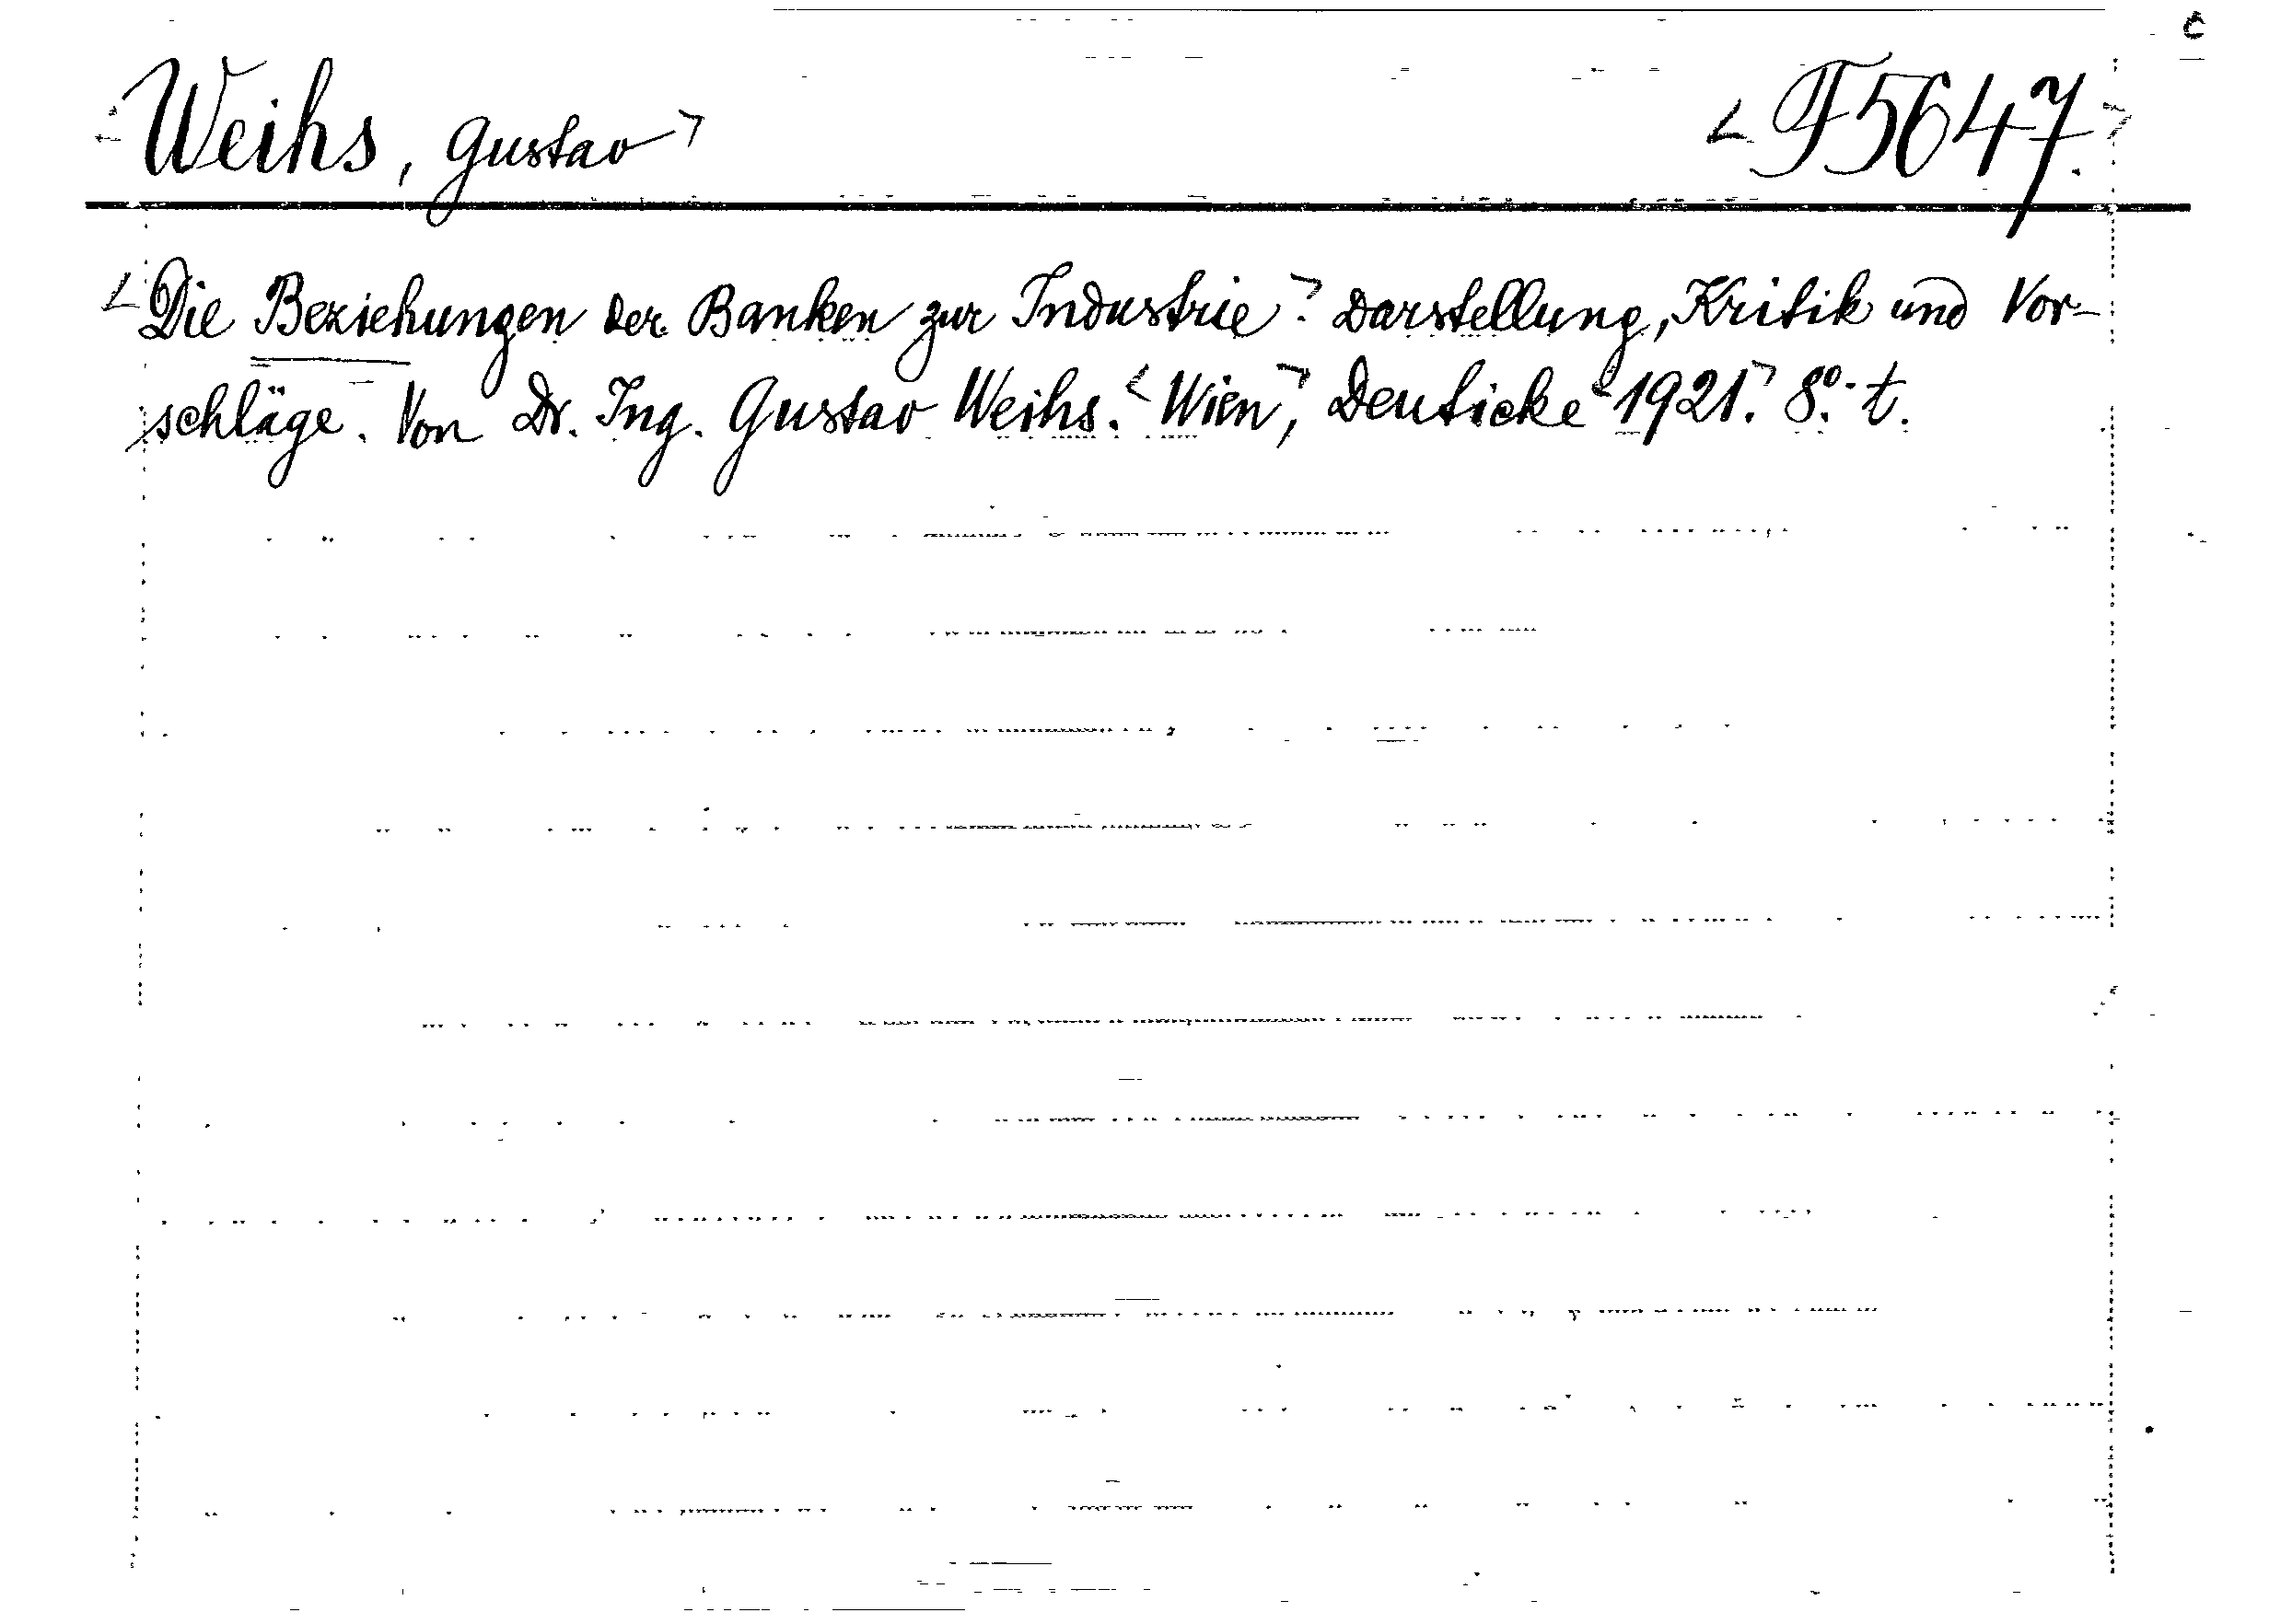 c
Weihs, Gustav
F5647.
Die Beziehungen der Banken zur Industrie. Darstellung, Kritik und Vor-
schläge. Von Dr. Ing. Gustav Weihs. Wien, Deuticke 1921. 8° t.